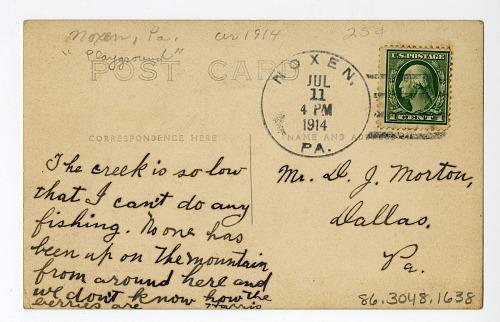 Noxen, Pa. cir 1914 25¢
"Playground"
POST CARD
NOXEN,
JUL
11
4 PM
1914
PA.
U.S. POSTAGE
1 CENT 1
CORRESPONDENCE HERE
NAME AND ADDRESS
The creek is so low
that I can't do any
fishing. No one has
been up on the mountain
from around here and
we don't know how the
berries are Harris
Mr. D. J. Morton,
Dallas,
Pa.
86.3048.1638